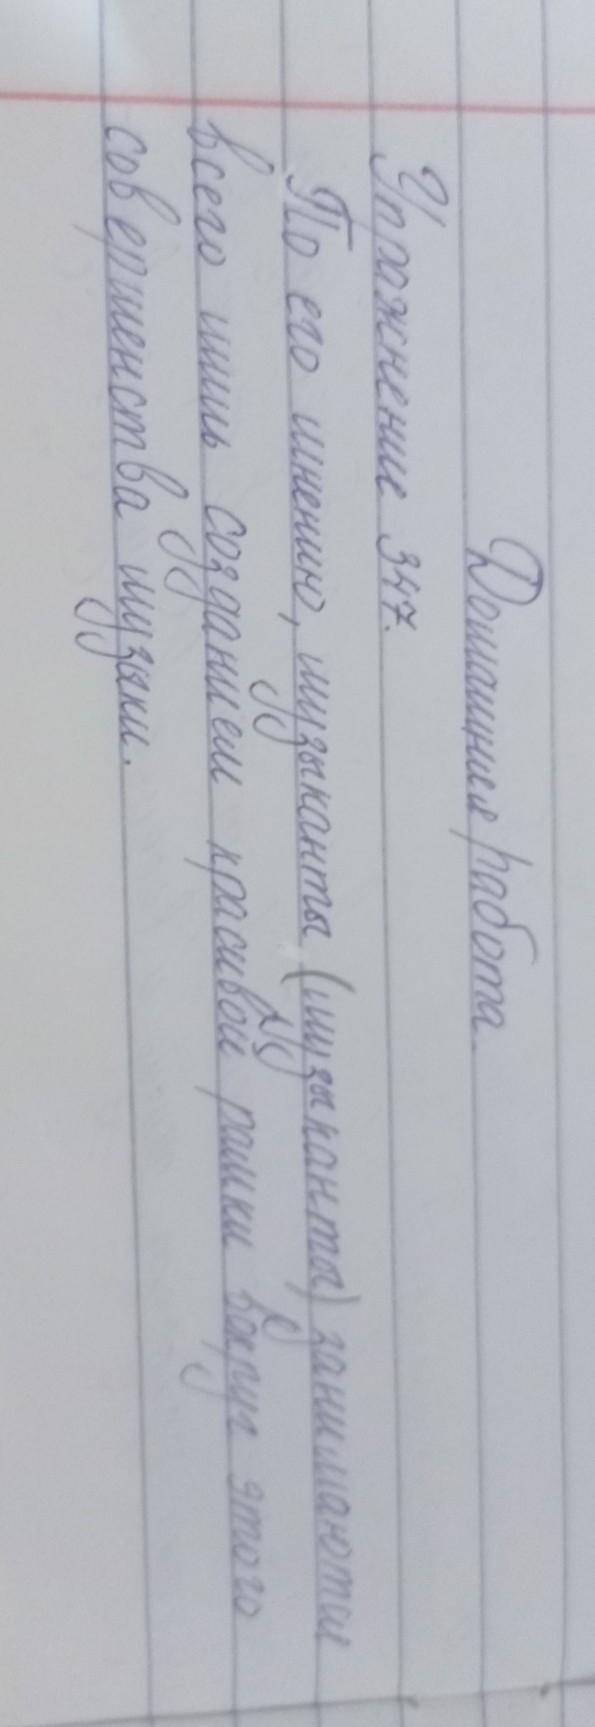 Домашняя работа.
Упражнение 347.
По его мнению, музыканты (музыканты) занимаются
всего лишь созданием красивой рамки вокруг этого
совершенства музыки.